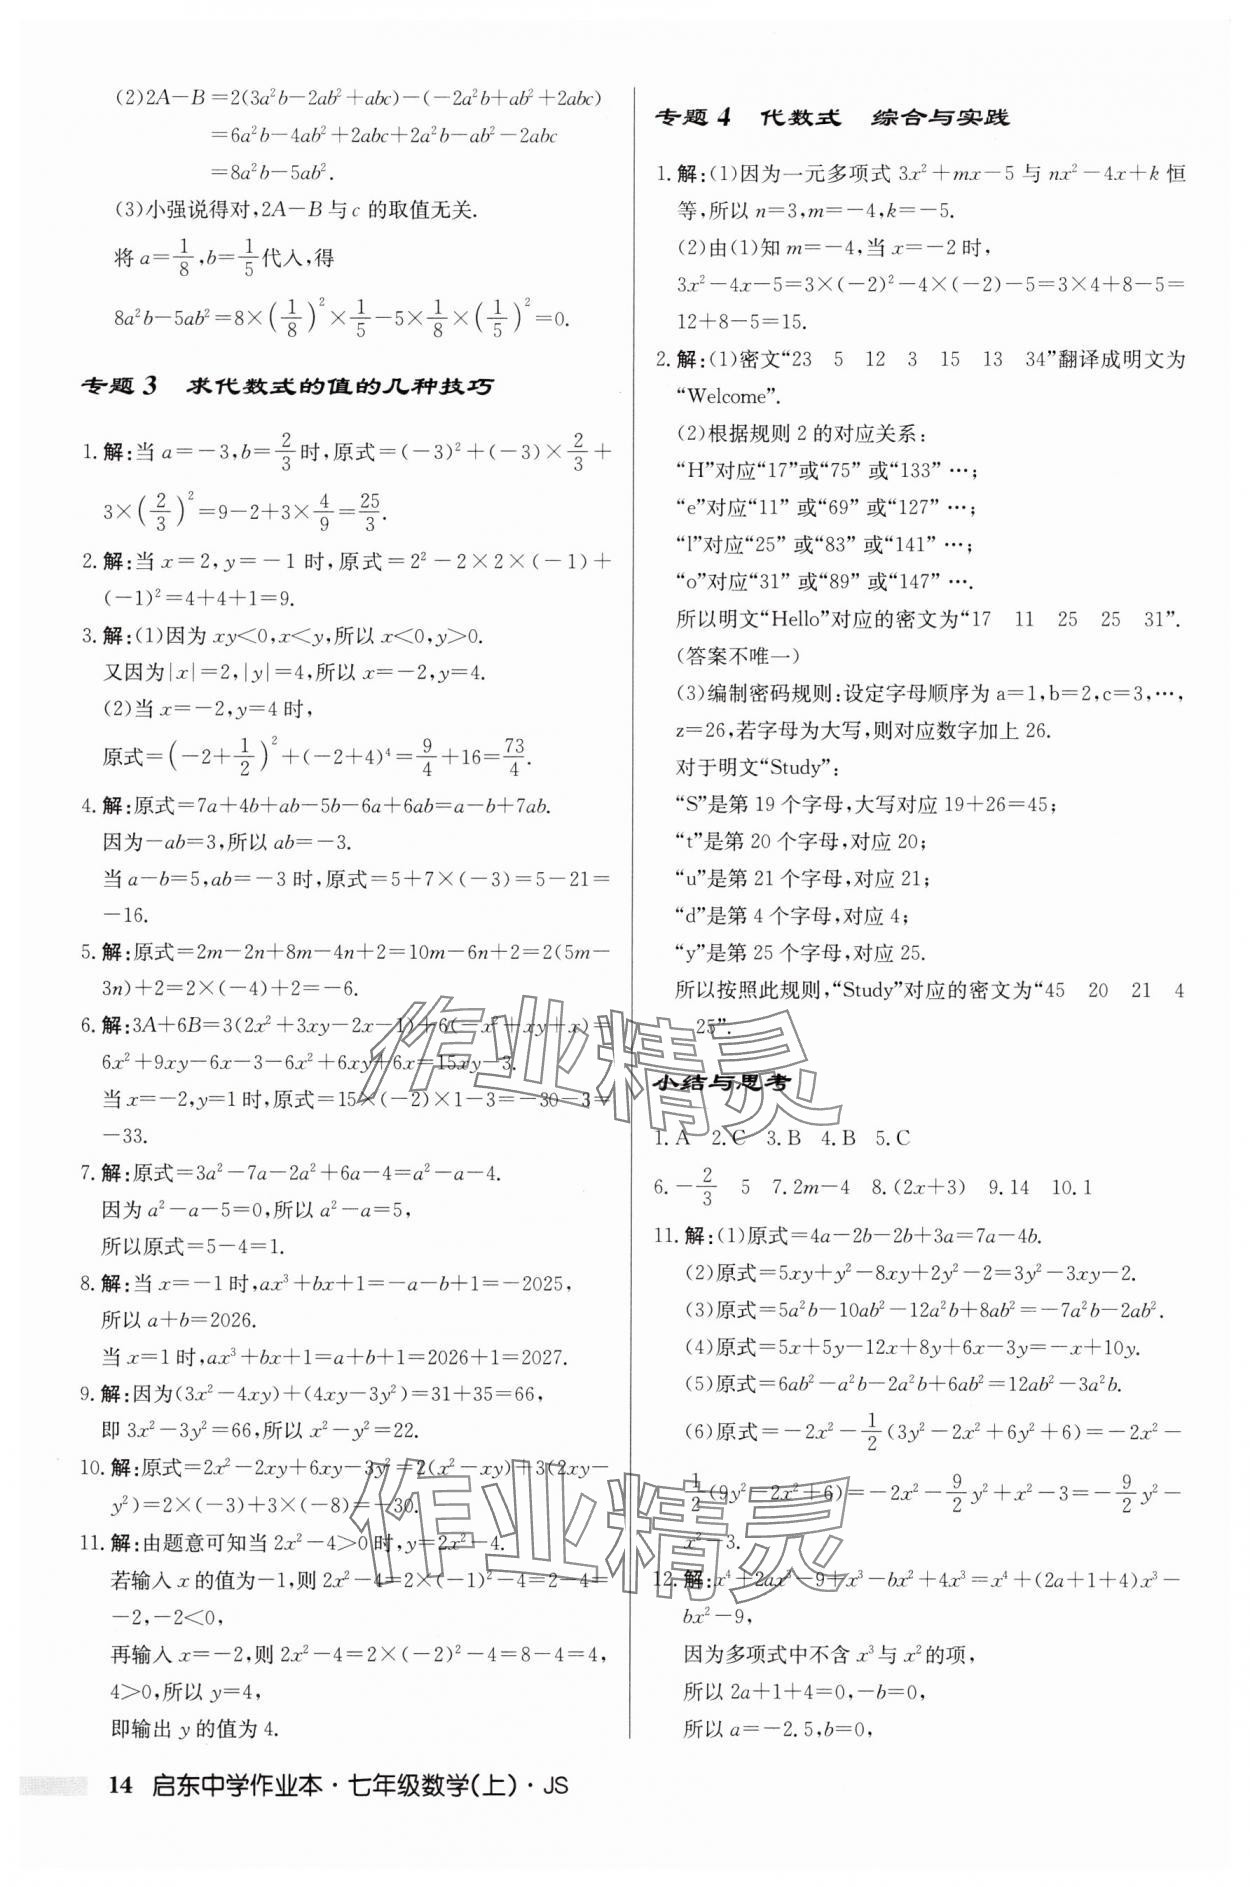 (2)2A−B=2(3a²b−2ab²+abc)−(−2a²b+ab²+2abc)
=6a²b−4ab²+2abc+2a²b−ab²−2abc
=8a²b−5ab².
(3)小强说得对,2A−B与c的取值无关.
将a=1/8,b=1/5代入,得
8a²b−5ab²=8×(1/8)²×1/5−5×1/8×(1/5)²=0.
专题3 求代数式的值的几种技巧
1.解:当a=−3,b=2/3时,原式=(−3)²+(−3)×2/3+
3×(2/3)²=9−2+3×4/9=25/3.
2.解:当x=2,y=−1时,原式=2²−2×2×(−1)+
(−1)²=4+4+1=9.
3.解:(1)因为xy<0,x<y,所以x<0,y>0.
又因为|x|=2,|y|=4,所以x=−2,y=4.
(2)当x=−2,y=4时,
原式=(−2+1/2)²+(−2+4)⁴=9/4+16=73/4.
4.解:原式=7a+4b+ab−5b−6a+6ab=a−b+7ab.
因为−ab=3,所以ab=−3.
当a−b=5,ab=−3时,原式=5+7×(−3)=5−21=
−16.
5.解:原式=2m−2n+8m−4n+2=10m−6n+2=2(5m−
3n)+2=2×(−4)+2=−6.
6.解:3A+6B=3(2x²+3xy−2x−1)+6(−x²+xy+x)=
6x²+9xy−6x−3−6x²+6xy+6x=15xy−3.
当x=−2,y=1时,原式=15×(−2)×1−3=−30−3=
−33.
7.解:原式=3a²−7a−2a²+6a−4=a²−a−4.
因为a²−a−5=0,所以a²−a=5,
所以原式=5−4=1.
8.解:当x=−1时,ax³+bx+1=−a−b+1=−2025,
所以a+b=2026.
当x=1时,ax³+bx+1=a+b+1=2026+1=2027.
9.解:因为(3x²−4xy)+(4xy−3y²)=31+35=66,
即3x²−3y²=66,所以x²−y²=22.
10.解:原式=2x²−2xy+6xy−3y²=2(x²−xy)+3(2xy−
y²)=2×(−3)+3×(−8)=−30.
11.解:由题意可知当2x²−4>0时,y=2x²−4.
若输入x的值为−1,则2x²−4=2×(−1)²−4=2−4=
−2,−2<0,
再输入x=−2,则2x²−4=2×(−2)²−4=8−4=4,
4>0,所以y=4,
即输出y的值为4.
专题4 代数式 综合与实践
1.解:(1)因为一元多项式3x²+mx−5与nx²−4x+k恒
等,所以n=3,m=−4,k=−5.
(2)由(1)知m=−4,当x=−2时,
3x²−4x−5=3×(−2)²−4×(−2)−5=3×4+8−5=
12+8−5=15.
2.解:(1)密文“23 5 12 3 15 13 34”翻译成明文为
“Welcome”.
(2)根据规则2的对应关系:
“H”对应“17”或“75”或“133”…;
“e”对应“11”或“69”或“127”…;
“l”对应“25”或“83”或“141”…;
“o”对应“31”或“89”或“147”….
所以明文“Hello”对应的密文为“17 11 25 25 31”.
(答案不唯一)
(3)编制密码规则:设定字母顺序为a=1,b=2,c=3,…,
z=26,若字母为大写,则对应数字加上26.
对于明文“Study”:
“S”是第19个字母,大写对应19+26=45;
“t”是第20个字母,对应20;
“u”是第21个字母,对应21;
“d”是第4个字母,对应4;
“y”是第25个字母,对应25.
所以按照此规则,“Study”对应的密文为“45 20 21 4
25”.
小结与思考
1.A 2.C 3.B 4.B 5.C
6.−2/3 5 7.2m−4 8.(2x+3) 9.14 10.1
11.解:(1)原式=4a−2b−2b+3a=7a−4b.
(2)原式=5xy+y²−8xy+2y²−2=3y²−3xy−2.
(3)原式=5a²b−10ab²−12a²b+8ab²=−7a²b−2ab².
(4)原式=5x+5y−12x+8y+6x−3y=−x+10y.
(5)原式=6ab²−a²b−2a²b+6ab²=12ab²−3a²b.
(6)原式=−2x²−1/2(3y²−2x²+6y²+6)=−2x²−
1/2(9y²−2x²+6)=−2x²−9/2y²+x²−3=−9/2y²−
x²−3.
12.解:x⁴+2ax³−9+x³−bx²+4x³=x⁴+(2a+1+4)x³−
bx²−9,
因为多项式中不含x³与x²的项,
所以2a+1+4=0,−b=0,
所以a=−2.5,b=0,
作业精灵
作业精灵
14 启东中学作业本·七年级数学(上)·JS